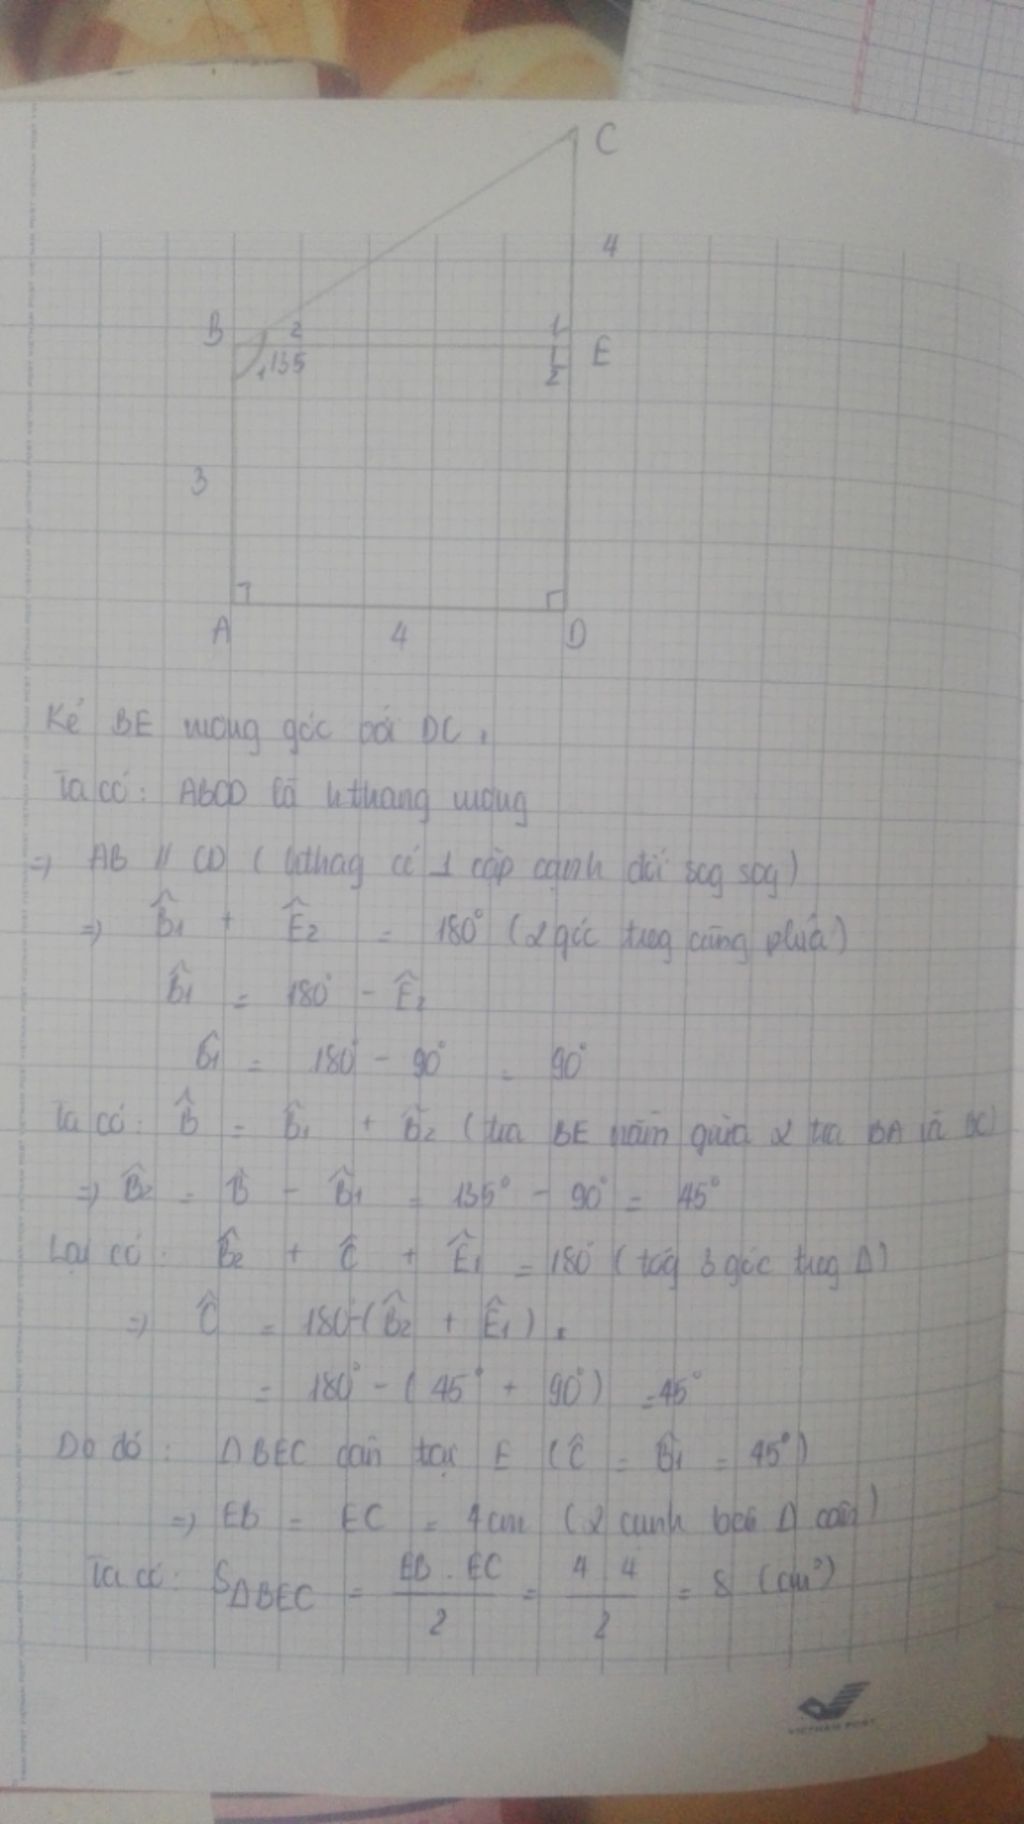 C
4
B 2 1 E
1 135 2
3
A 4 D
Kẻ BE vuông góc với DC.
Ta có: ABCD là hthang vuông
=> AB // CD (hthag có 1 cặp cạnh đối sog sog)
=> B̂1 + Ê2 = 180° (2 góc trog cùng phía)
B̂1 = 180° - Ê2
B̂1 = 180° - 90° = 90°
Ta có: B̂ = B̂1 + B̂2 (tia BE nằm giữa 2 tia BA và BC)
=> B̂2 = B̂ - B̂1 = 135° - 90° = 45°
Lại có: B̂2 + Ĉ + Ê1 = 180° (tổg 3 góc trog Δ)
=> Ĉ = 180°-(B̂2 + Ê1).
= 180° - (45° + 90°) = 45°
Do đó: ΔBEC cân tại E (Ĉ = B̂1 = 45°)
=> EB = EC = 4cm (2 cạnh bên Δ cân)
Ta có: SΔBEC = EB . EC / 2 = 4 4 / 2 = 8 (cm²)
VIETNAM POST